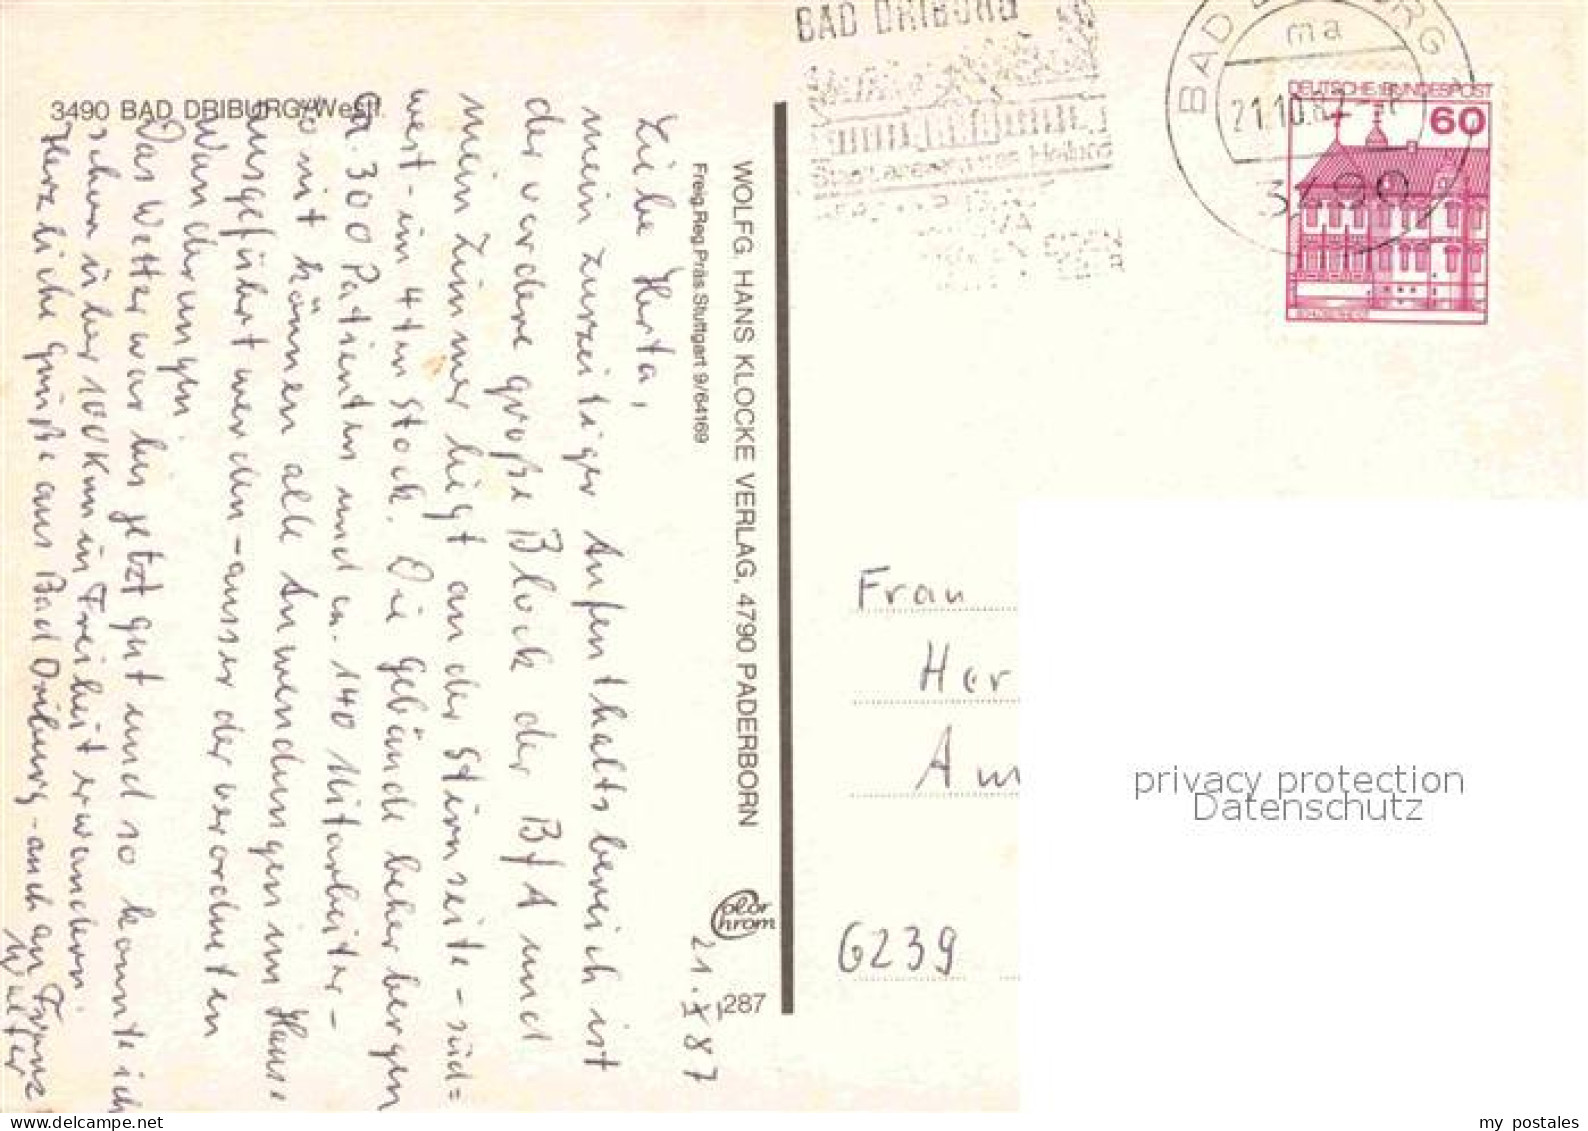 3490 BAD DRIBURG/Westf.
21.X.87
Liebe Herta,
mein zurzeitiger Aufenthaltsbereich ist
der vordere große Block der BfA und
mein Zimmer liegt an der Stirnseite - süd=
west - im 4ten Stock. Die Gebäude beherbergen
ca. 300 Patienten und ca. 140 Mitarbeiter -
so mit können alle Anwendungen im Hause
ausgeführt werden - ausser der verordneten
Wanderungen.
Das Wetter war bis jetzt gut und so konnte ich
schon über 100 Km in Freiheit erwandern.
Herzliche Grüße aus Bad Driburg - auch an Franz
Walter
WOLFG. HANS KLOCKE VERLAG, 4790 PADERBORN
Freig. Reg. Präs. Stuttgart 9/64169
Color
Chrom
287
BAD DRIBURG
BAD DRIBURG 1
ma
21.10.87
3490
DEUTSCHE BUNDESPOST
60
Frau
Her
Am
6239
privacy protection
Datenschutz
www.delcampe.net
my_postales